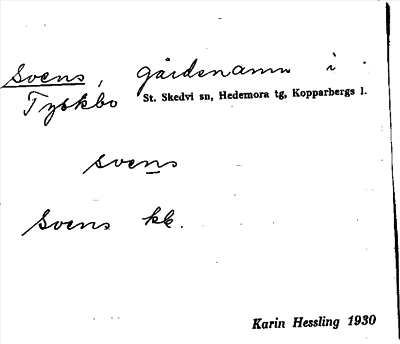 Svens, gårdsnamn i
Tyskbo St. Skedvi sn, Hedemora tg, Kopparbergs l.
svens
Svens kk.
Karin Hessling 1930